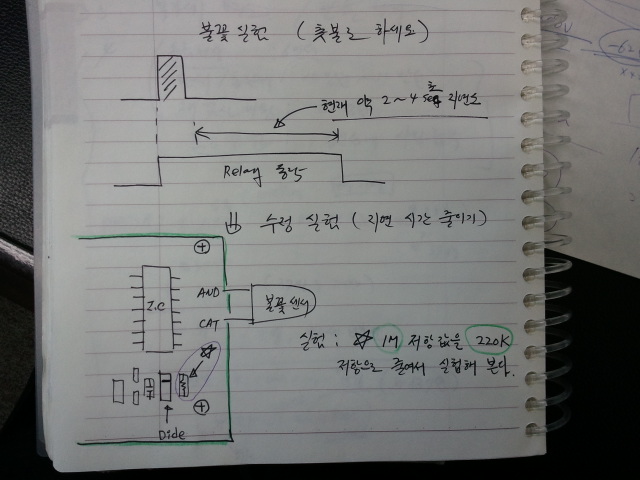 불꽃 실험 (촛불로 하세요)
현재 약 2~4초 지연소
Relay 동작
수정 실험 (지연 시간 줄이기)
I.C
AND
불꽃센서
CAT
실험 : ☆ 1M 저항값을 220K
저항으로 줄여서 실험해 본다.
Dide